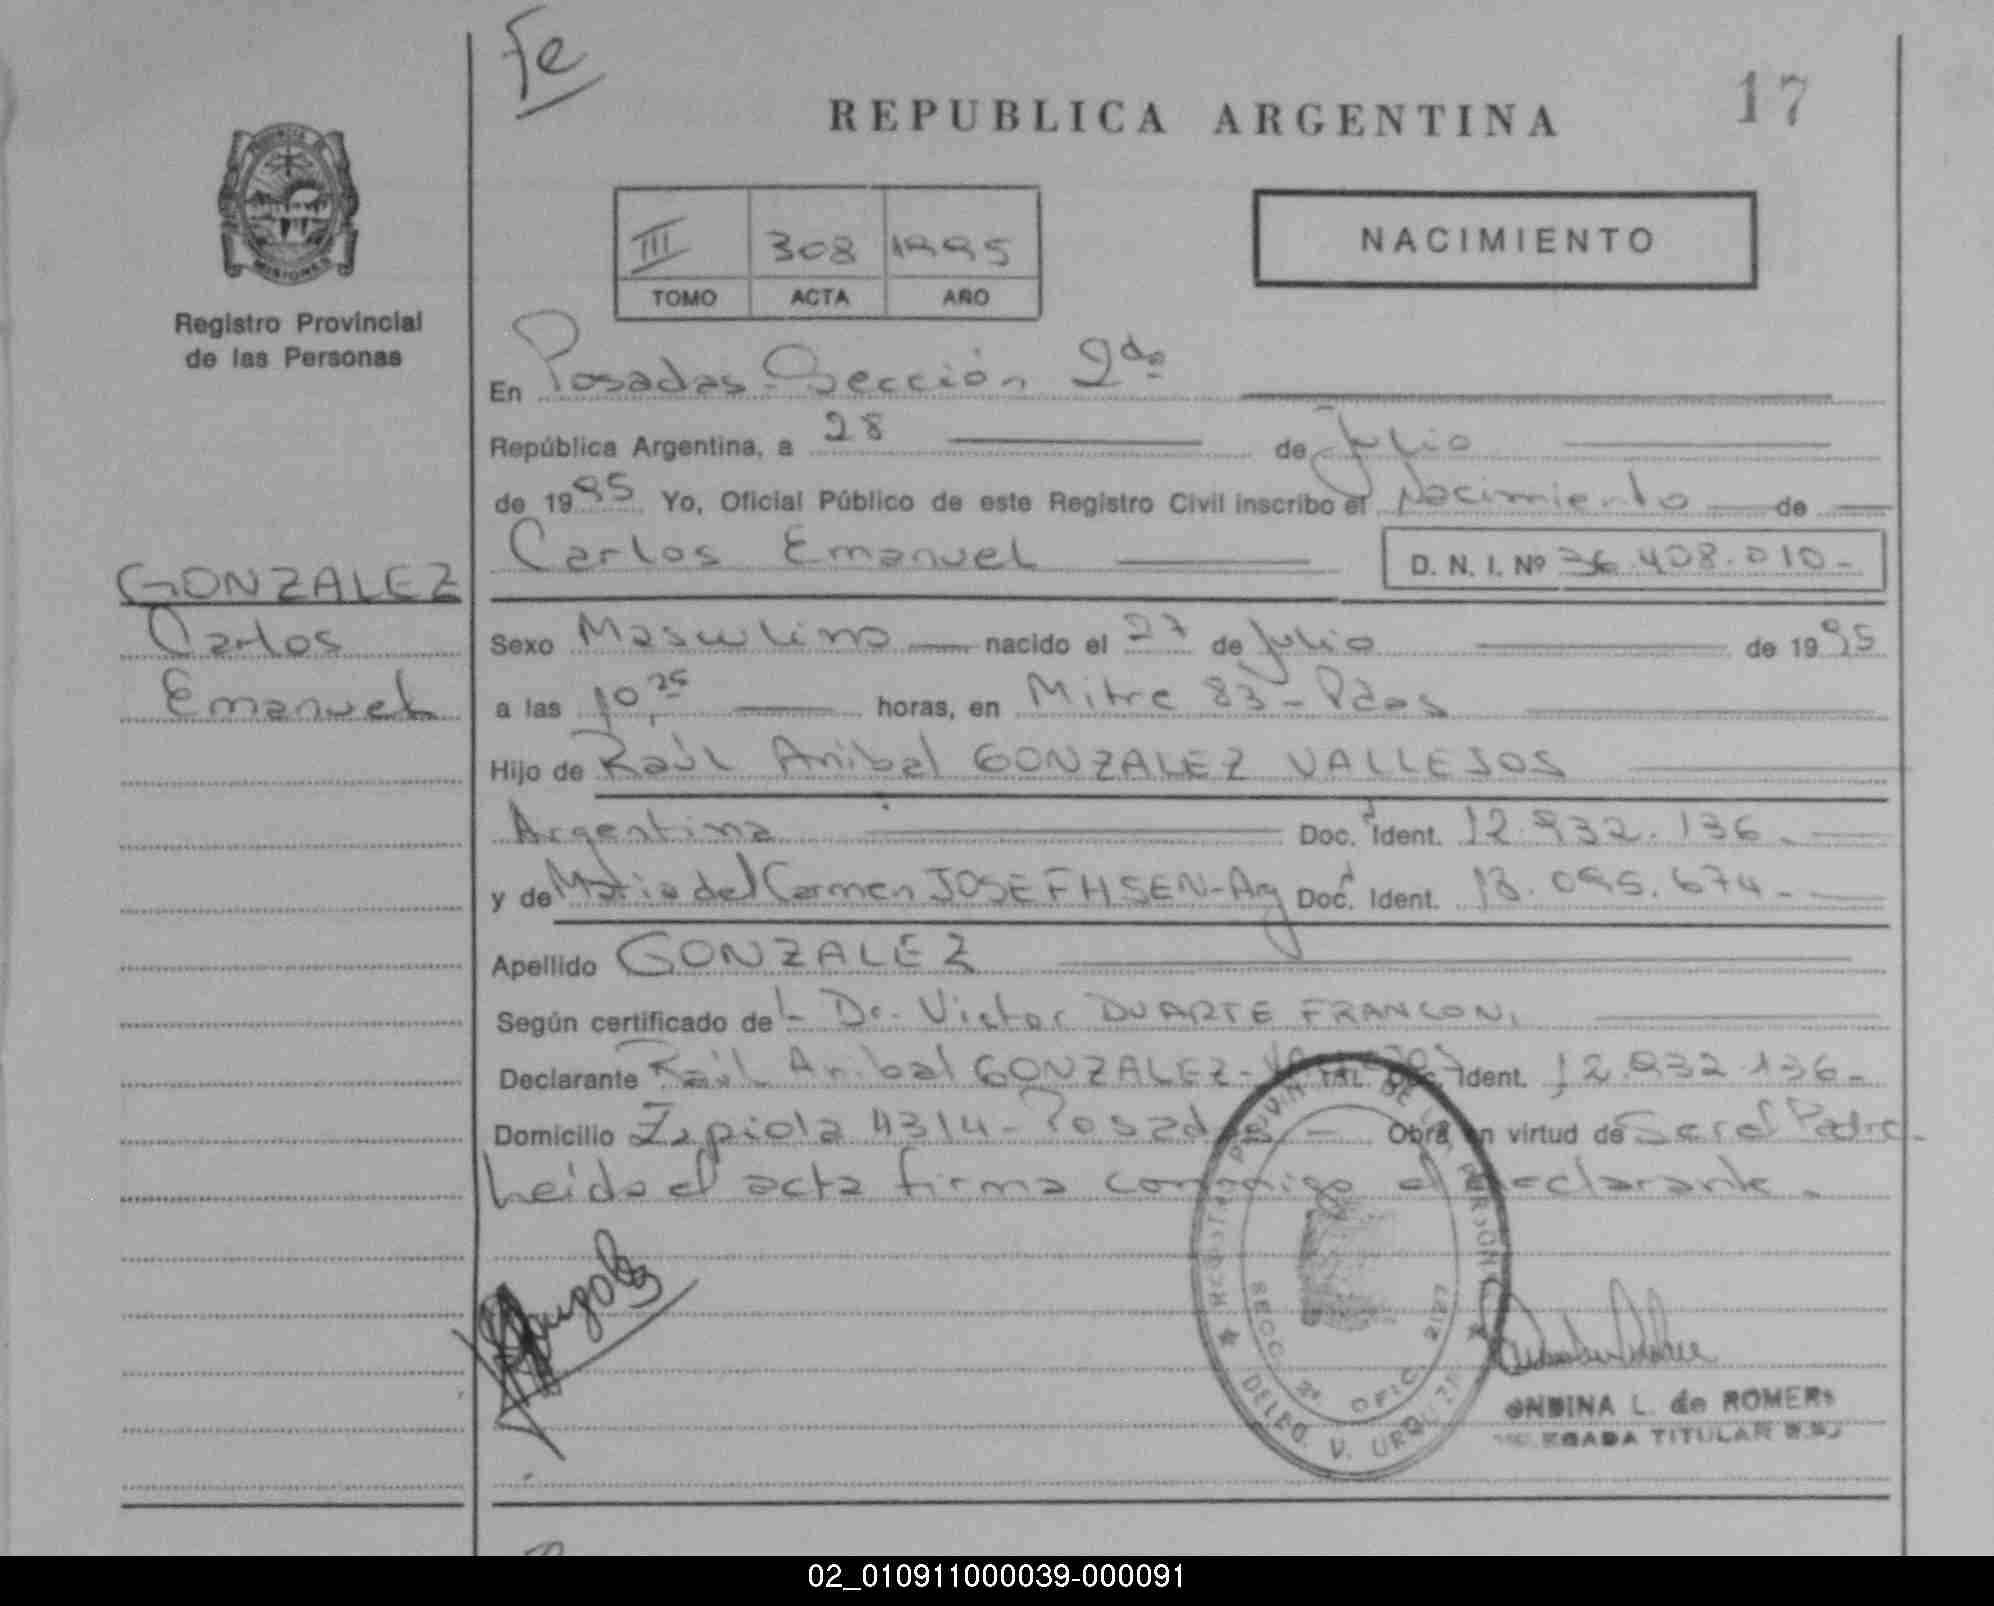 Fe
REPUBLICA ARGENTINA
17
MISIONES
Registro Provincial
de las Personas
III 308 1995
TOMO ACTA AÑO
NACIMIENTO
En Posadas-Sección 2da
República Argentina, a 28 de Julio
de 1995 Yo, Oficial Público de este Registro Civil inscribo el Nacimiento de
Carlos Emanuel D. N. I. Nº 36.408.010-
GONZALEZ
Carlos
Emanuel
Sexo Masculino nacido el 27 de Julio de 1995
a las 10,25 horas, en Mitre 83-Pdas
Hijo de Raúl Anibal GONZALEZ VALLEJOS
Argentina Doc. Ident. 12.932.136.
y de Maria del Carmen JOSEFHSEN-Arg Doc. Ident. 18.095.674-
Apellido GONZALEZ
Según certificado del Dr. Victor DUARTE FRANCONI
Declarante Raúl Anibal GONZALEZ- Doc. Ident. 12.932.136-
Domicilio Zapiola 4314-Posadas- Obra en virtud de Ser el Padre-
Leida el acta firma conmigo el declarante.
REGISTRO PROVINCIAL DE LAS PERSONAS
SECC. 2ª OFIC. 2127
DELEG. V. URQUIZA
ONDINA L. de ROMERO
DELEGADA TITULAR
02_010911000039-000091